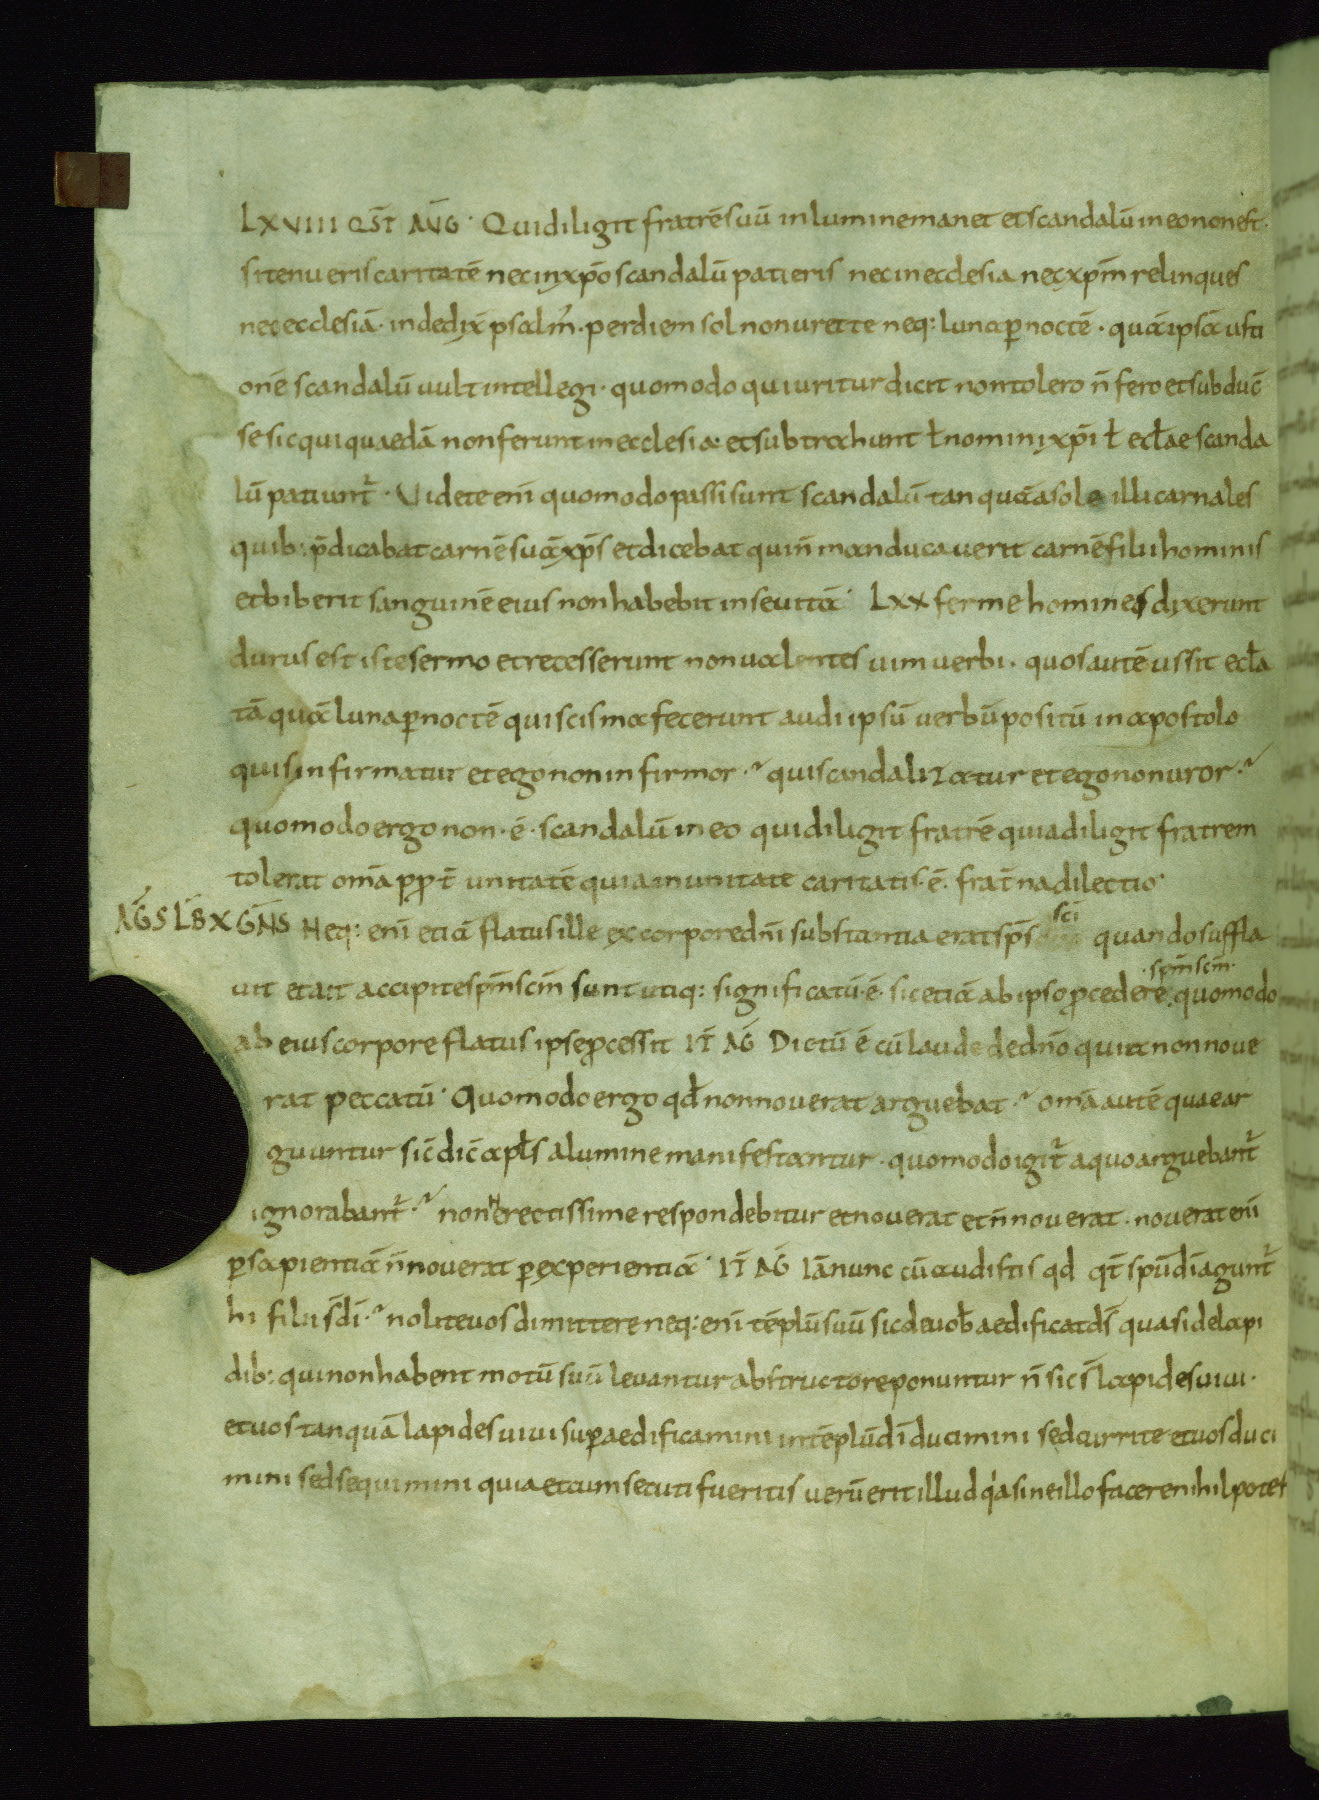 LXVIII QST̄ AUḠ · Qui diligit fratrē suū in lumine manet et scandalū in eo non est ·
si tenueris caritatē nec in xp̄o scandalū patieris nec in ecclesia nec xp̄m relinques
nec ecclesiā · inde dix̄ psalm̄ · per diem sol non uret te neq: luna ꝑ noctē · quā ipsā usti
onē scandalū uult intellegi · quomodo qui uritur dicit non tolero n̄ fero et subduc̄
se sic qui quaedā non ferunt in ecclesia et subtrahunt ł nomini xp̄i ł eclł̄ae scanda
lū patiunt̄ · Uidete enī quomodo passi sunt scandalū tanquā a sole illi carnales
quib: p̄dicabat carnē suā xp̄s et dicebat qui n̄ manducauerit carnē filii hominis
et biberit sanguinē eius non habebit in se uitā · LXX ferme homines dixerunt
durus est iste sermo et recesserunt non ualentes uim uerbi · quos autē ussit eclł̄a
tā quā luna ꝑ noctē qui scisma fecerunt audi ipsū uerbū positū in apostolo
quis infirmatur et ego non infirmor ·? qui scandalizatur et ego non uror ·?
quomodo ergo non · ē · scandalū in eo qui diligit fratrē quia diligit fratrem
tolerat om̄a ꝓpt̄ unitatē quia in unitate caritatis · ē · frat̄na dilectio ·
AḠS LB̄ X GN̄S Neq: enī etiā flatus ille ex corpore dn̄i substantia erat sp̄s sc̄i quando suffla
uit et ait accipite sp̄m sc̄m sunt utiq: significatū · ē · sic etiā ab ipso ꝓcedere · sp̄m sc̄m · quomodo
ab eius corpore flatus ipse ꝓcessit IT̄ AḠ Dictū ē cū laude de dn̄o quia non noue
rat peccatū · Quomodo ergo qđ non nouerat arguebat ·? om̄a autē quae ar
guuntur sic̄ dic̄ apl̄s a lumine manifestantur · quomodo igit̄ a quo arguebant̄
ignorabant̄ ·? nonne rectissime respondebitur et nouerat et n̄ nouerat · nouerat enī
ꝑ sapientiā n̄ nouerat ꝑ experientiā · IT̄ AḠ Iā nunc cū audistis qd qt̄ spū dī agunt̄
hi filii s̄ dī ·? nolite uos dimittere neq: enī tēplū suū sic de uob̄ aedificat ds̄ quasi de lapi
dib: qui non habent motū suū leuantur ab structore ponuntur n̄ sic s̄ lapides uiui ·
et uos tanquā lapides uiui suꝑaedificamini in tēplū dī ducimini sed currite et uos duci
mini sed sequimini quia et cum secuti fueritis uerū erit illud qa sine illo facere nihil potes